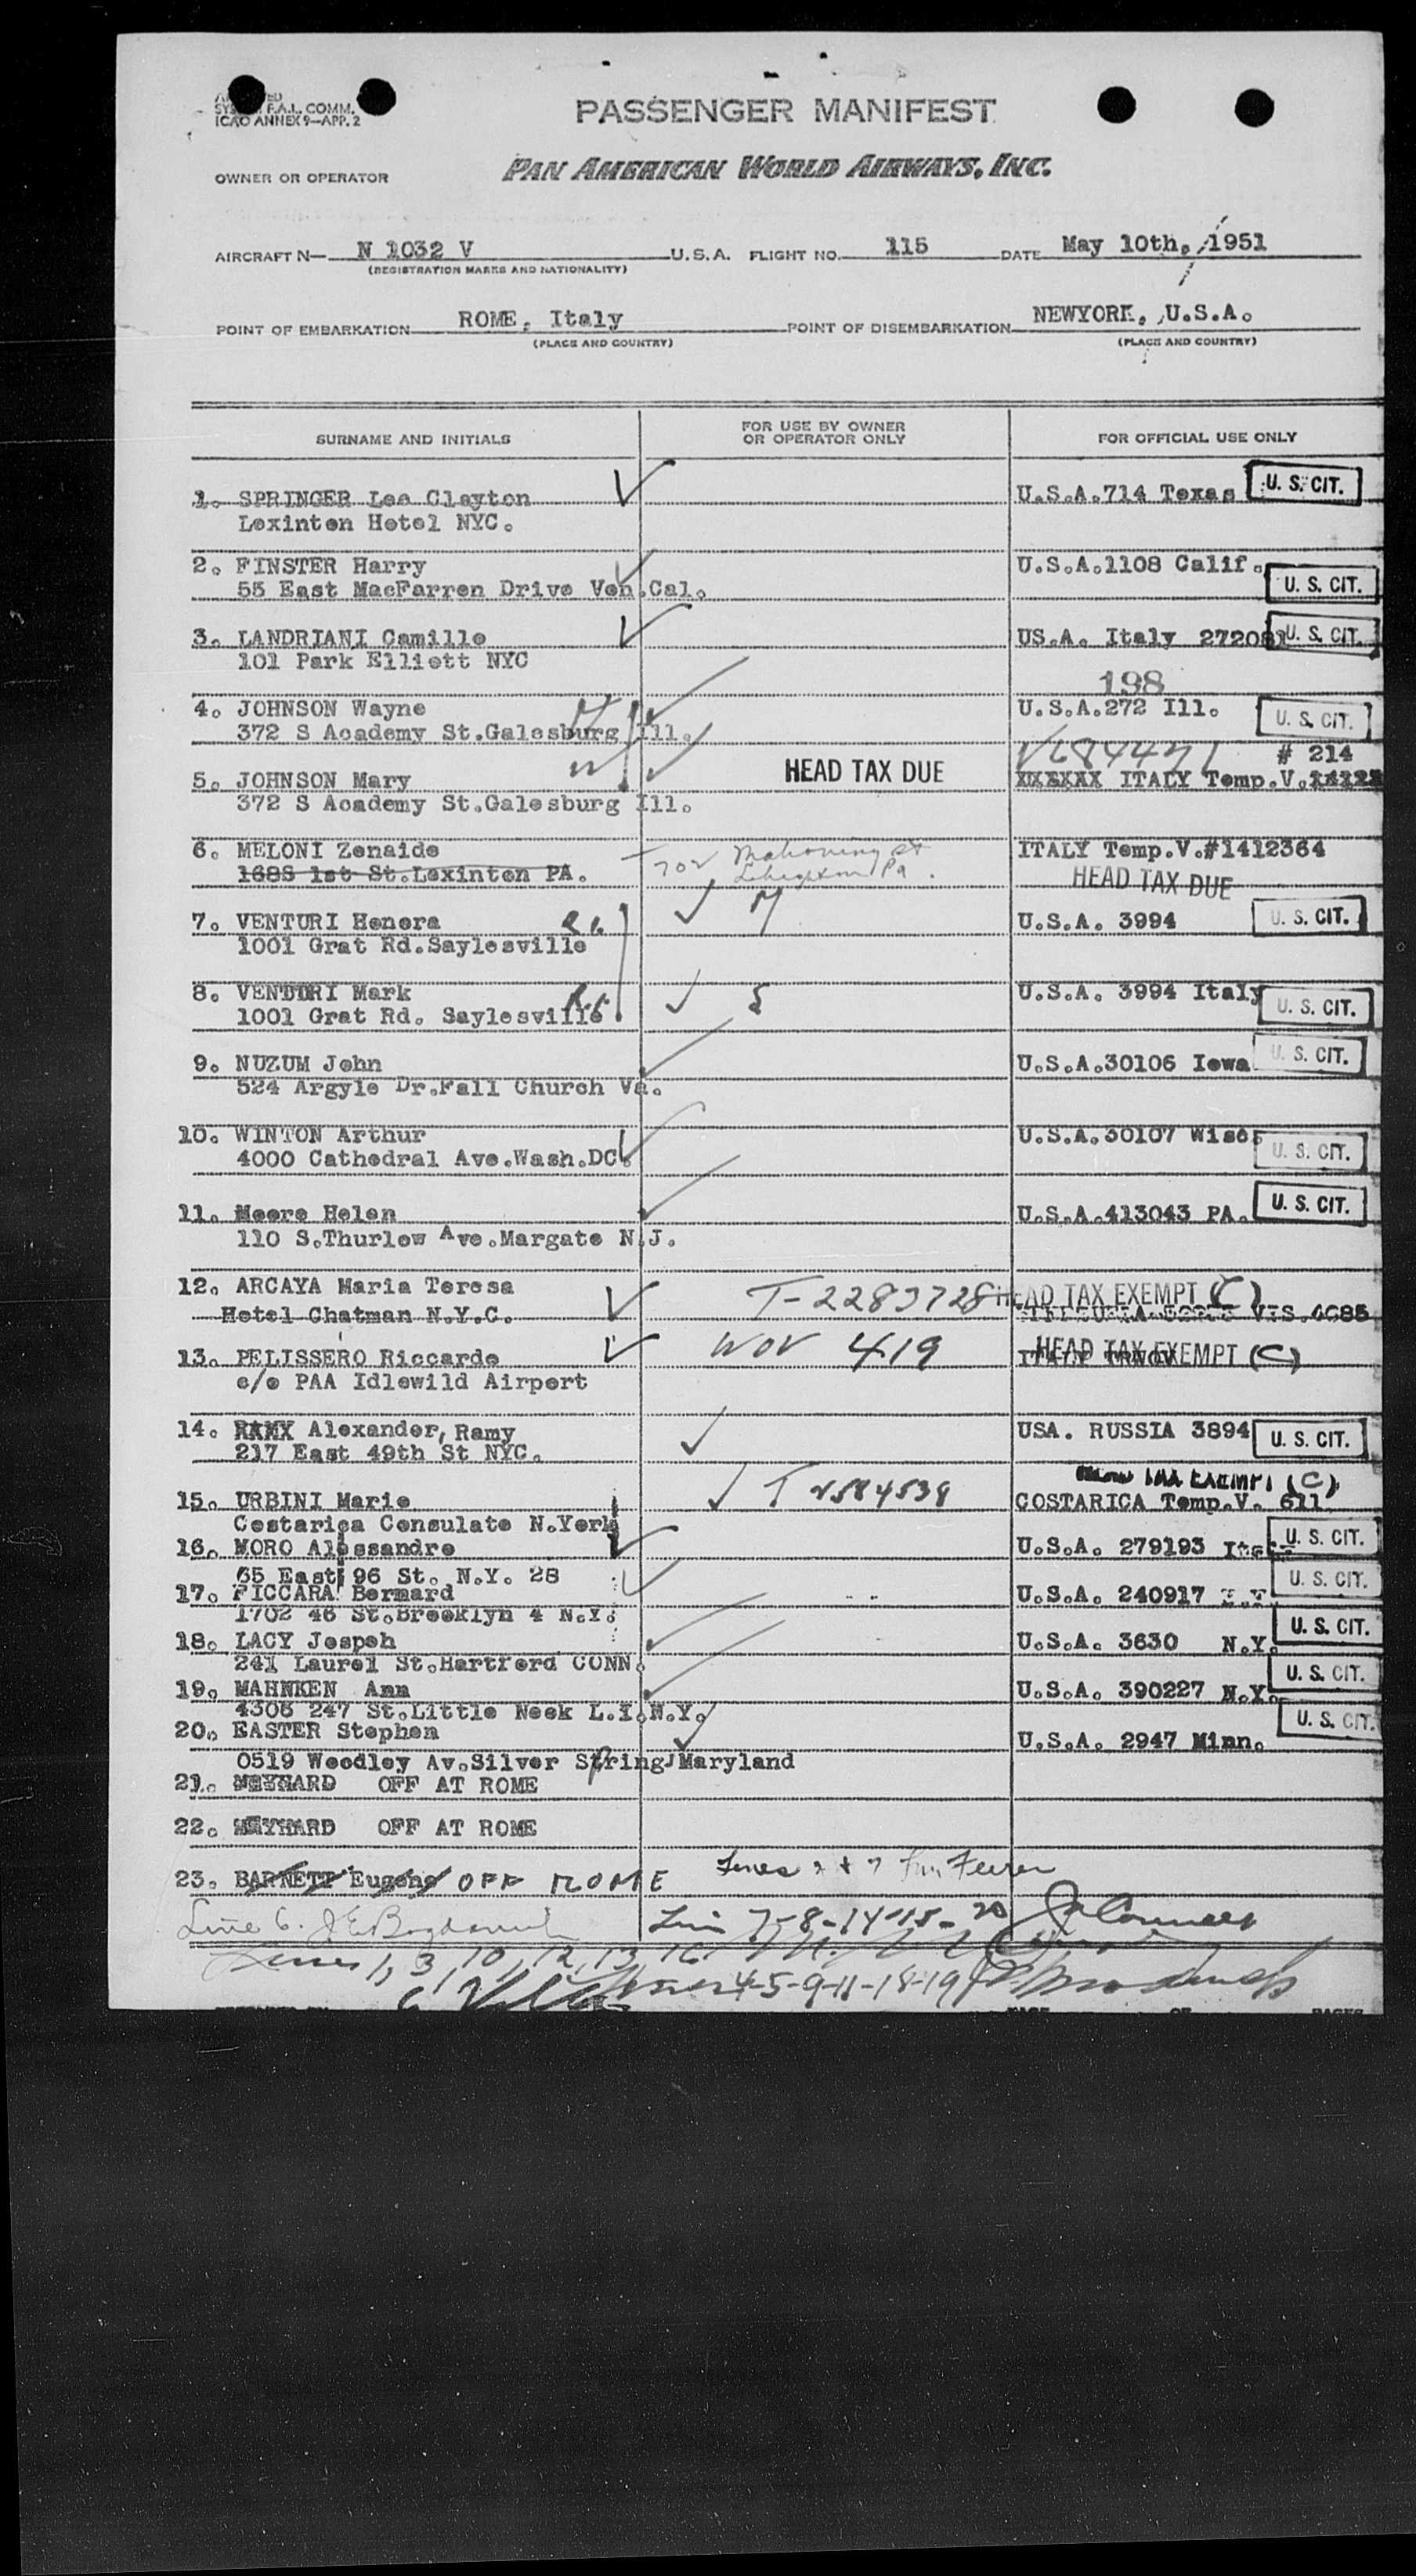 F.A.L. COMM.
ICAO ANNEX 9—APP. 2
PASSENGER MANIFEST
OWNER OR OPERATOR PAN AMERICAN WORLD AIRWAYS, INC.
AIRCRAFT N— N 1032 V U.S.A. FLIGHT NO. 115 DATE May 10th, 1951
(REGISTRATION MARKS AND NATIONALITY)
POINT OF EMBARKATION ROME, Italy POINT OF DISEMBARKATION NEWYORK, U.S.A.
(PLACE AND COUNTRY) (PLACE AND COUNTRY)
SURNAME AND INITIALS FOR USE BY OWNER OR OPERATOR ONLY FOR OFFICIAL USE ONLY
1. SPRINGER Lee Clayton U.S.A.714 Texas U. S. CIT.
Lexinton Hotel NYC.
2. FINSTER Harry U.S.A.1108 Calif.
55 East MacFarren Drive Ven.Cal. U. S. CIT.
3. LANDRIANI Camille US.A. Italy 272081 U. S. CIT.
101 Park Elliott NYC
198
4. JOHNSON Wayne U.S.A.272 Ill. U. S. CIT.
372 S Academy St.Galesburg Ill.
V684471 # 214
5. JOHNSON Mary HEAD TAX DUE ITALY Temp.V.
372 S Academy St.Galesburg Ill.
6. MELONI Zenaide 702 Mahoning St ITALY Temp.V.#1412364
168S 1st St.Lexinton PA. Lehighton Pa. HEAD TAX DUE
7. VENTURI Honora R.I. M U.S.A. 3994 U. S. CIT.
1001 Grat Rd.Saylesville
8. VENTURI Mark U.S.A. 3994 Italy
1001 Grat Rd. Saylesville R.I. S U. S. CIT.
9. NUZUM John U.S.A.30106 Iowa U. S. CIT.
524 Argyle Dr.Fall Church Va.
10. WINTON Arthur U.S.A.30107 Wisc
4000 Cathedral Ave.Wash.DC. U. S. CIT.
11. Moore Helen U.S.A.413043 PA. U. S. CIT.
110 S.Thurlow Ave.Margate N.J.
12. ARCAYA Maria Teresa T-2283728 HEAD TAX EXEMPT (C)
Hotel Chatman N.Y.C. VIS.4085
13. PELISSERO Riccardo WOV 419 HEAD TAX EXEMPT (C)
c/o PAA Idlewild Airport
14. RAMX Alexander, Ramy USA. RUSSIA 3894 U. S. CIT.
217 East 49th St NYC.
EXEMPT (C)
15. URBINI Marie T 2584538 COSTARICA Temp.V. 611
Costarica Consulate N.York
16. MORO Alessandro U.S.A. 279193 U. S. CIT.
65 East 96 St. N.Y. 28
17. FICCARA Bernard U.S.A. 240917 U. S. CIT.
1702 46 St.Brooklyn 4 N.Y.
18. LACY Jospeh U.S.A. 3630 N.Y. U. S. CIT.
241 Laurel St.Hartford CONN.
19. MAHNKEN Ann U.S.A. 390227 N.Y. U. S. CIT.
4306 247 St.Little Neck L.I.N.Y.
20. EASTER Stephen U.S.A. 2947 Minn. U. S. CIT.
0519 Woodley Av.Silver Spring Maryland
21. MEYNARD OFF AT ROME
22. MEYNARD OFF AT ROME
23. BARNETT Eugene OFF ROME Lines
Line 6. Lin 7-8-14-15-20
Lines 1, 3, 10, 12, 13, 16, 4-5-9-11-18-19
PAGE OF PAGES